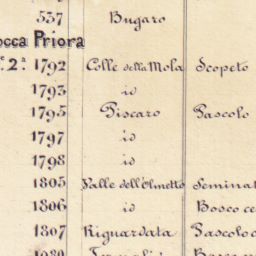 537 Bugaro
occa Priora
e. 2ª. 1792 Colle della Mola Scopeto
1793 id
1795 Piscaro Pascolo
1797 id
1798 id
1805 Valle dell'Olmetto Seminat
1806 id Bosco ce
1807 Riguardata Pascolo c